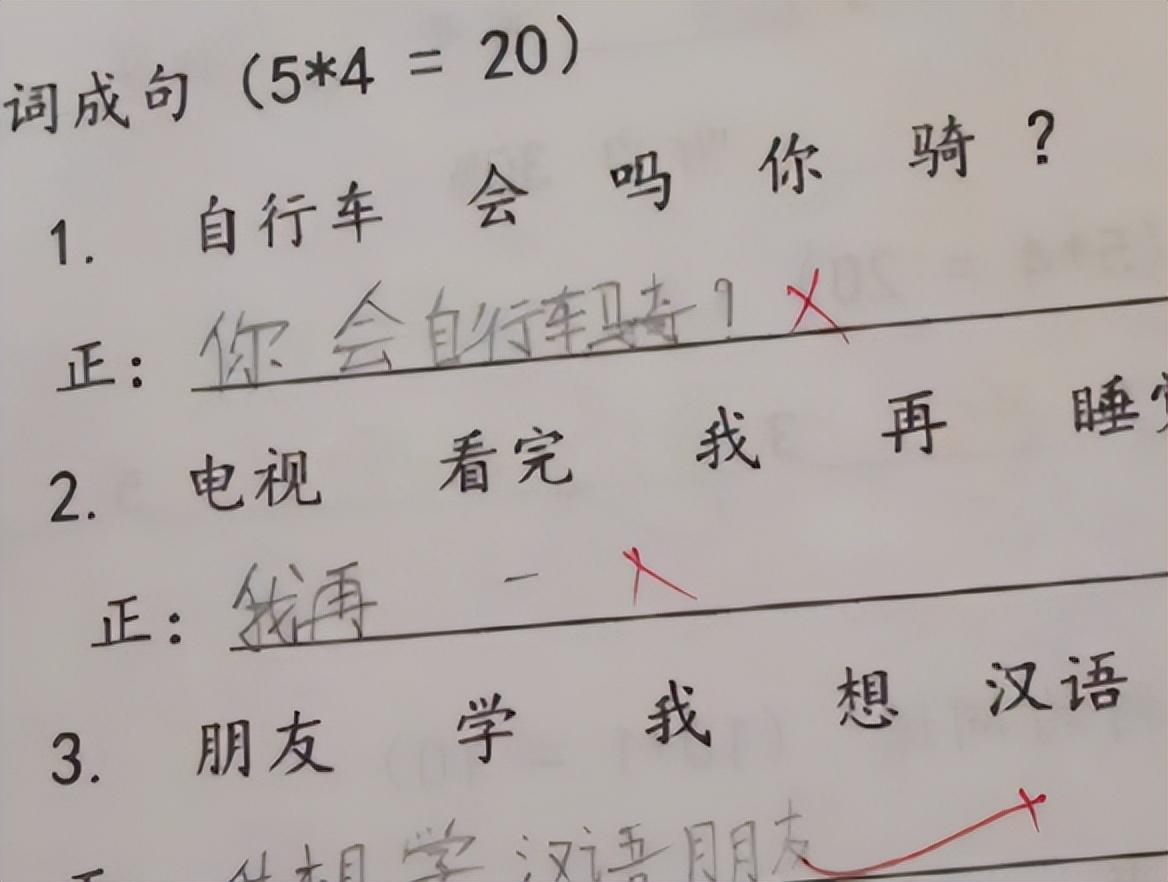 词成句（5*4 = 20）
1. 自行车 会 吗 你 骑 ?
正: 你会自行车骑?
2. 电视 看完 我 再 睡
正: 我再 一
3. 朋友 学 我 想 汉语
想学汉语朋友